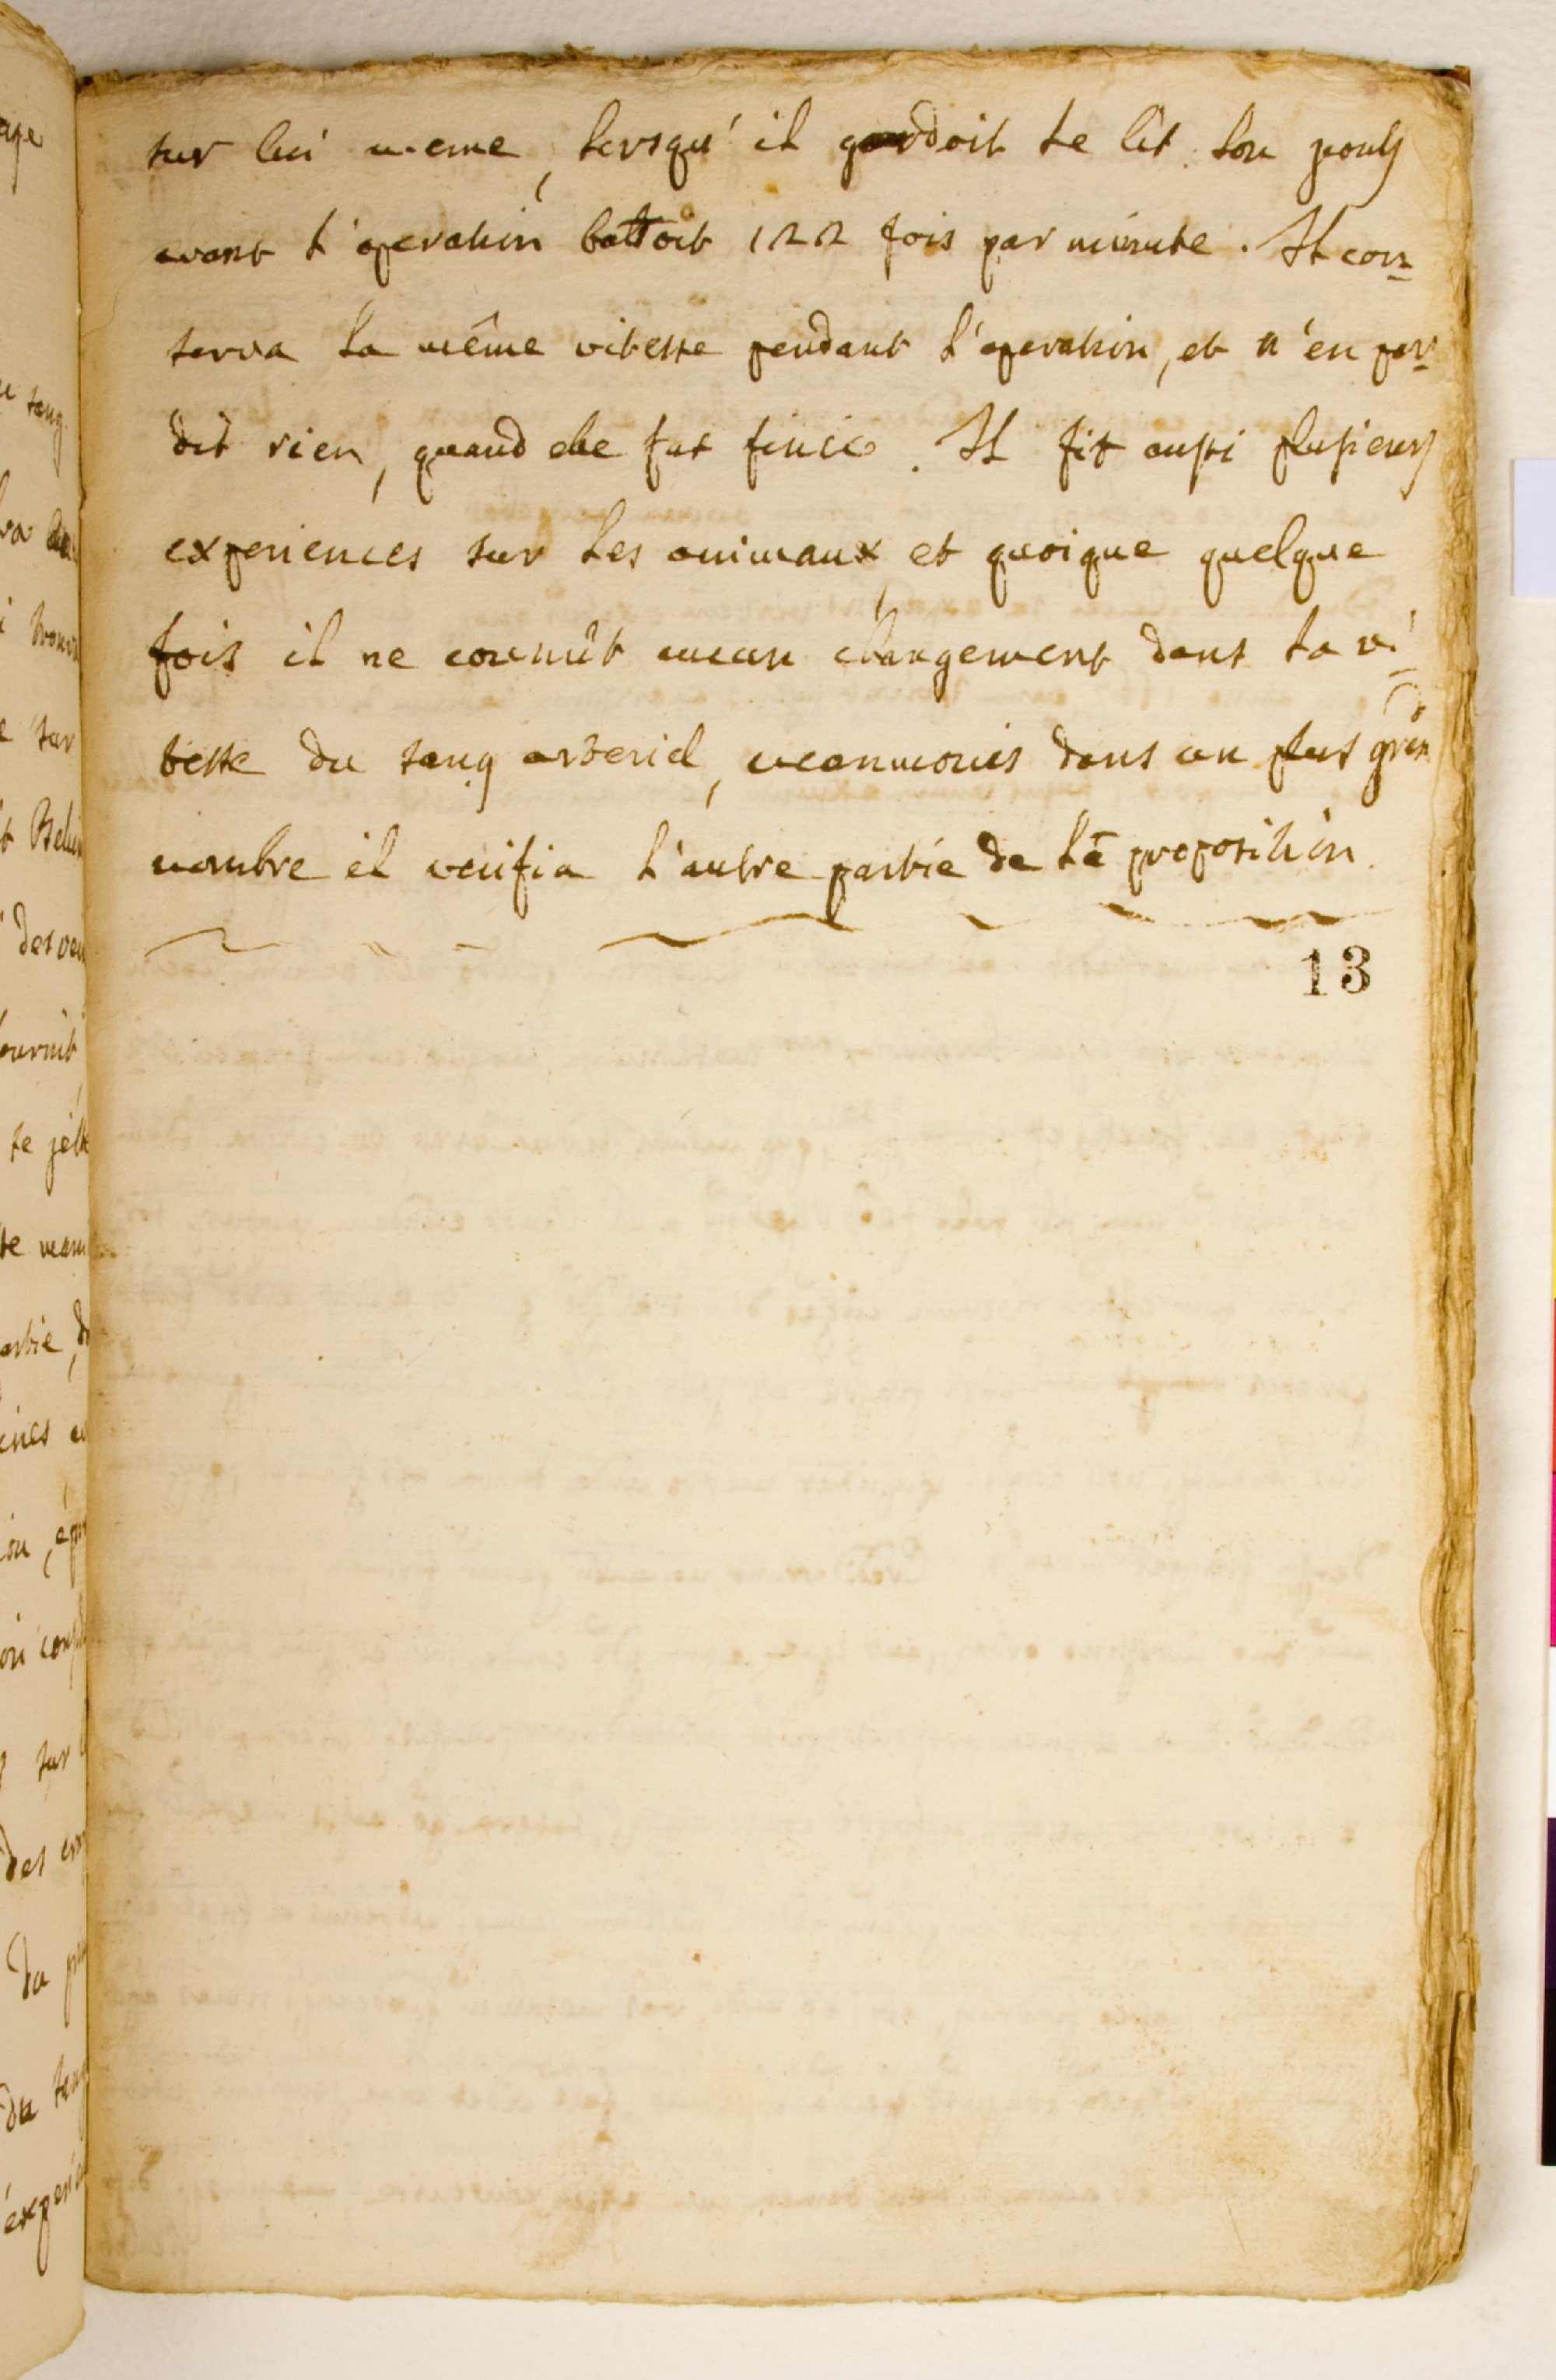 sur lui meme, lorsqu'il gardoit le lit. son pouls
avant l'operation battoit 122 fois par minute. Il con-
serva la même vitesse pendant l'operation, et n'en per-
dit rien, quand elle fut finie. Il fit aussi plusieurs
experiences sur les animaux, et quoique quelque
fois il ne connût aucun changement dans la vi-
tesse du sang arteriel, neanmoins dans un plus gran
nombre il verifia l'autre partie de la proposition.
13